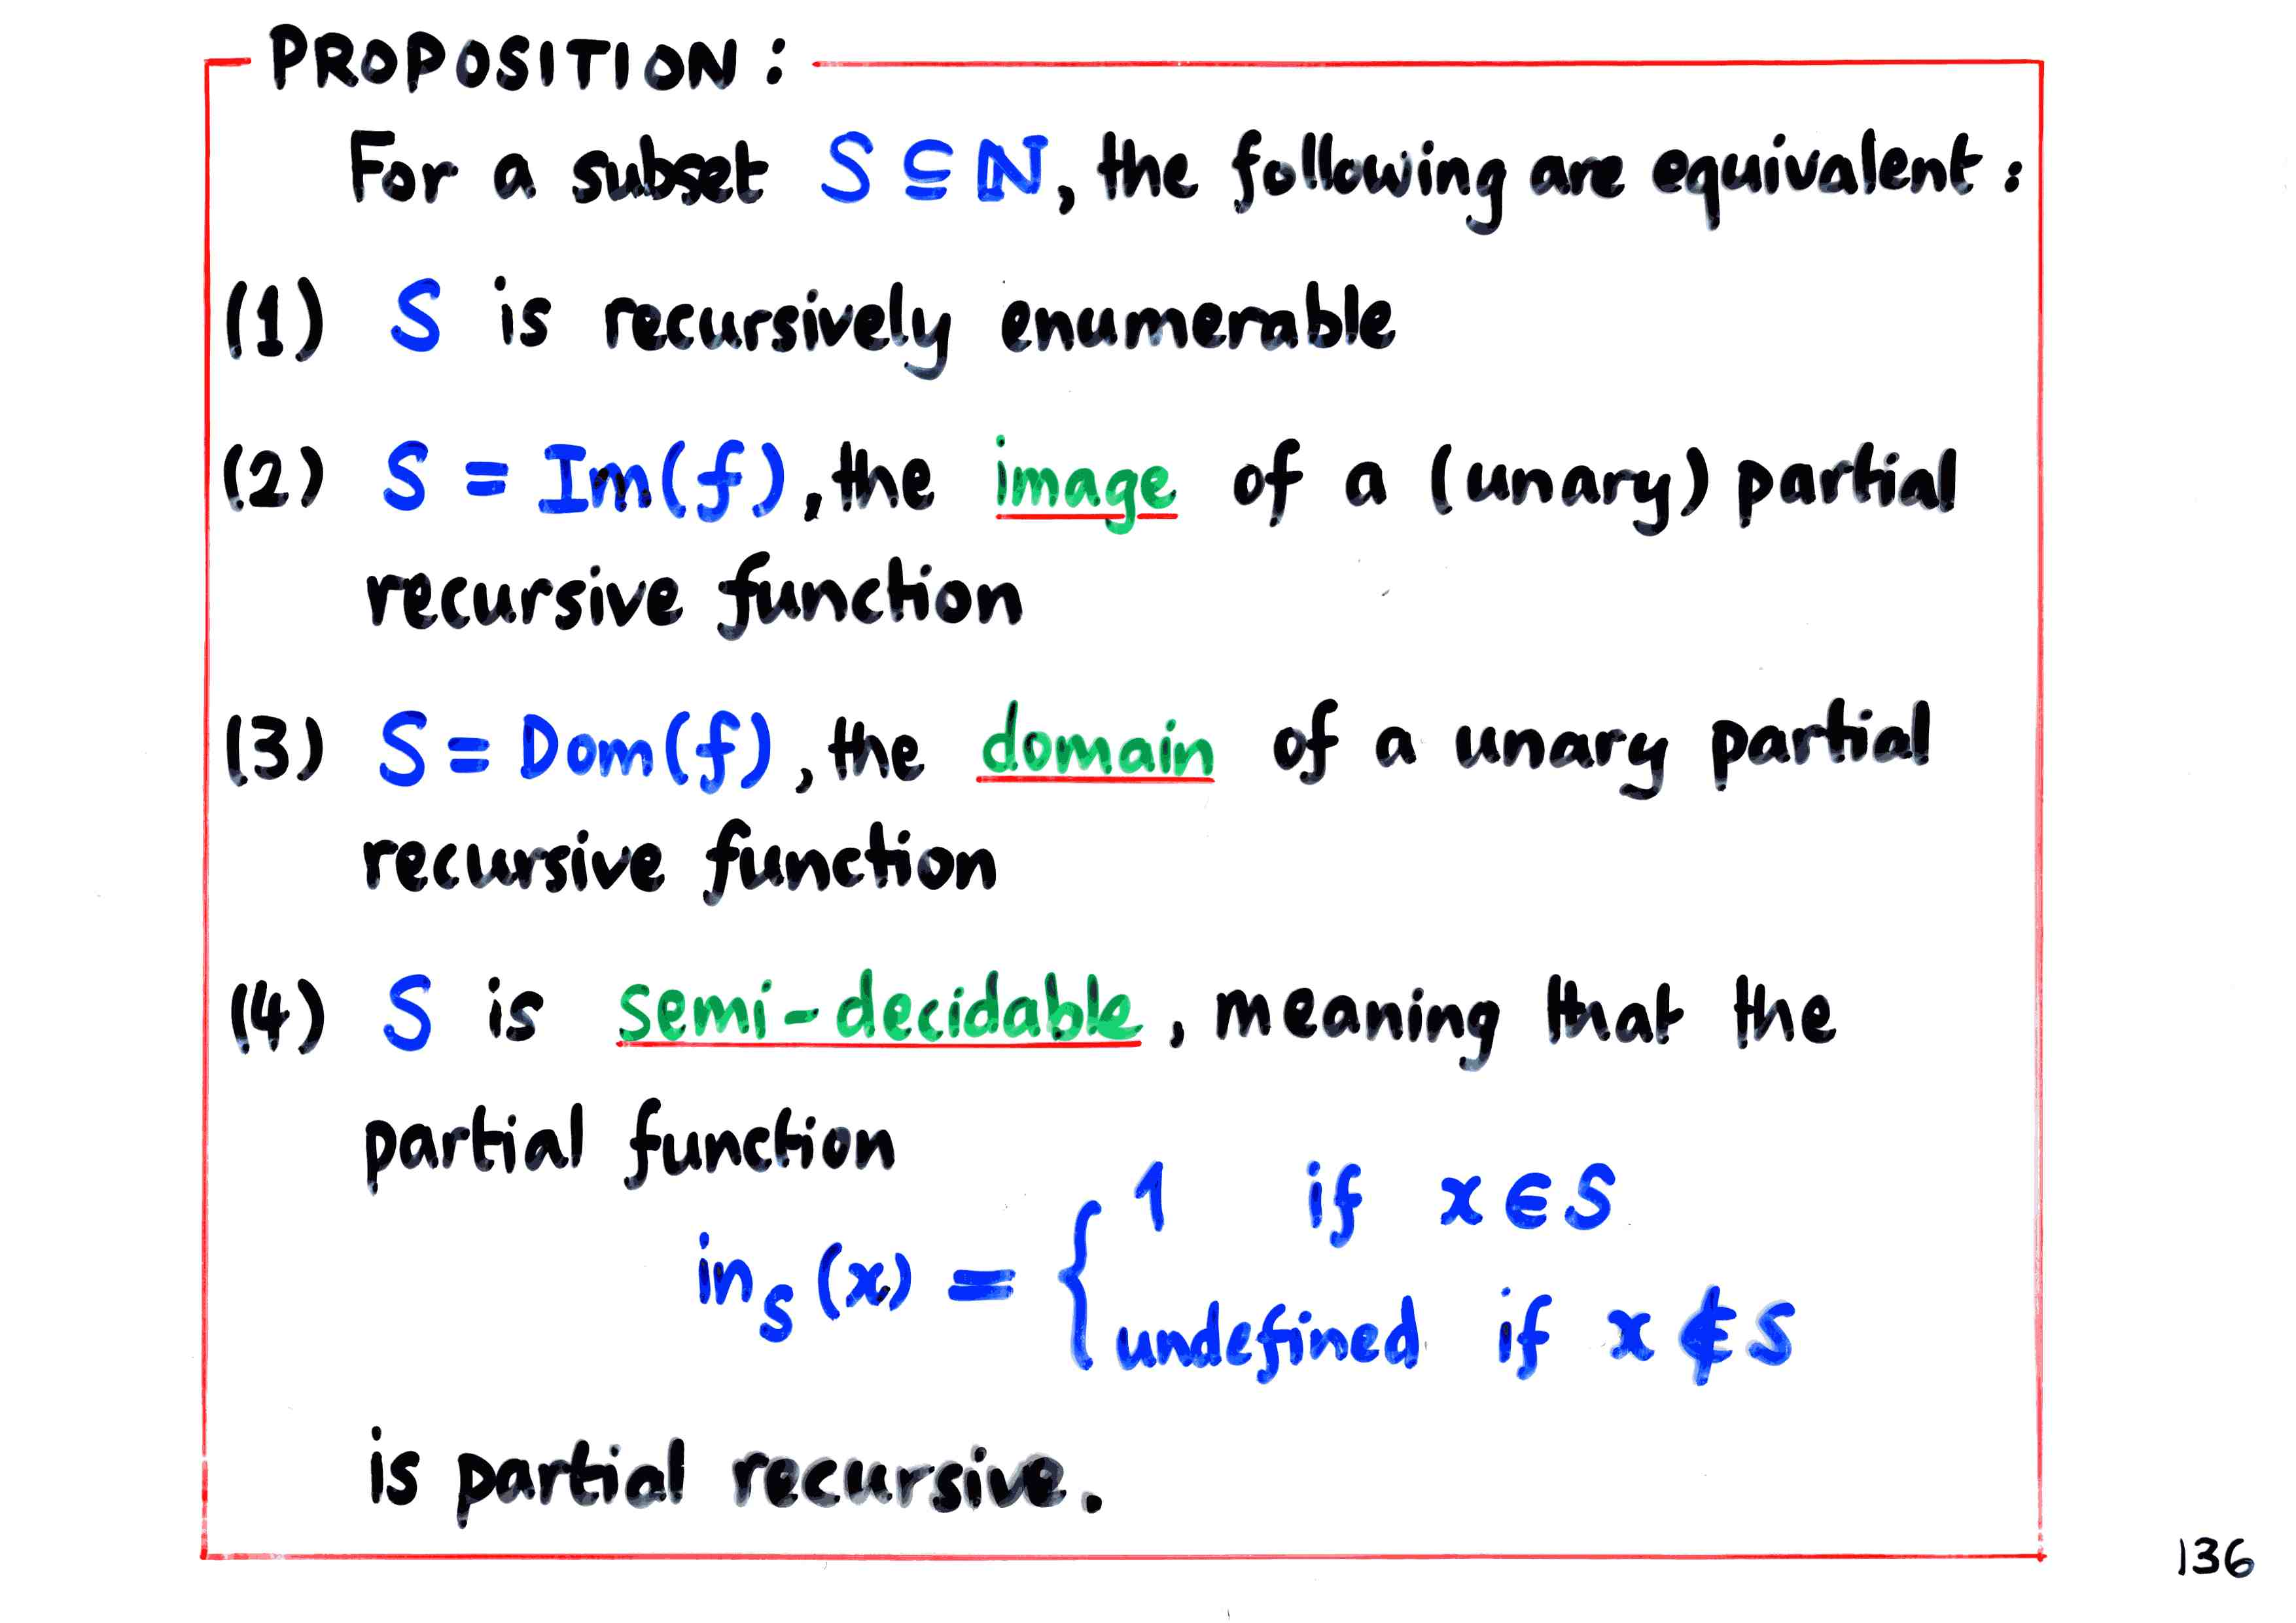 PROPOSITION:
For a subset S ⊆ ℕ, the following are equivalent:
(1) S is recursively enumerable
(2) S = Im(f), the image of a (unary) partial
recursive function
(3) S = Dom(f), the domain of a unary partial
recursive function
(4) S is semi-decidable, meaning that the
partial function
in_S(x) = { 1 if x ∈ S
undefined if x ∉ S
is partial recursive.
136